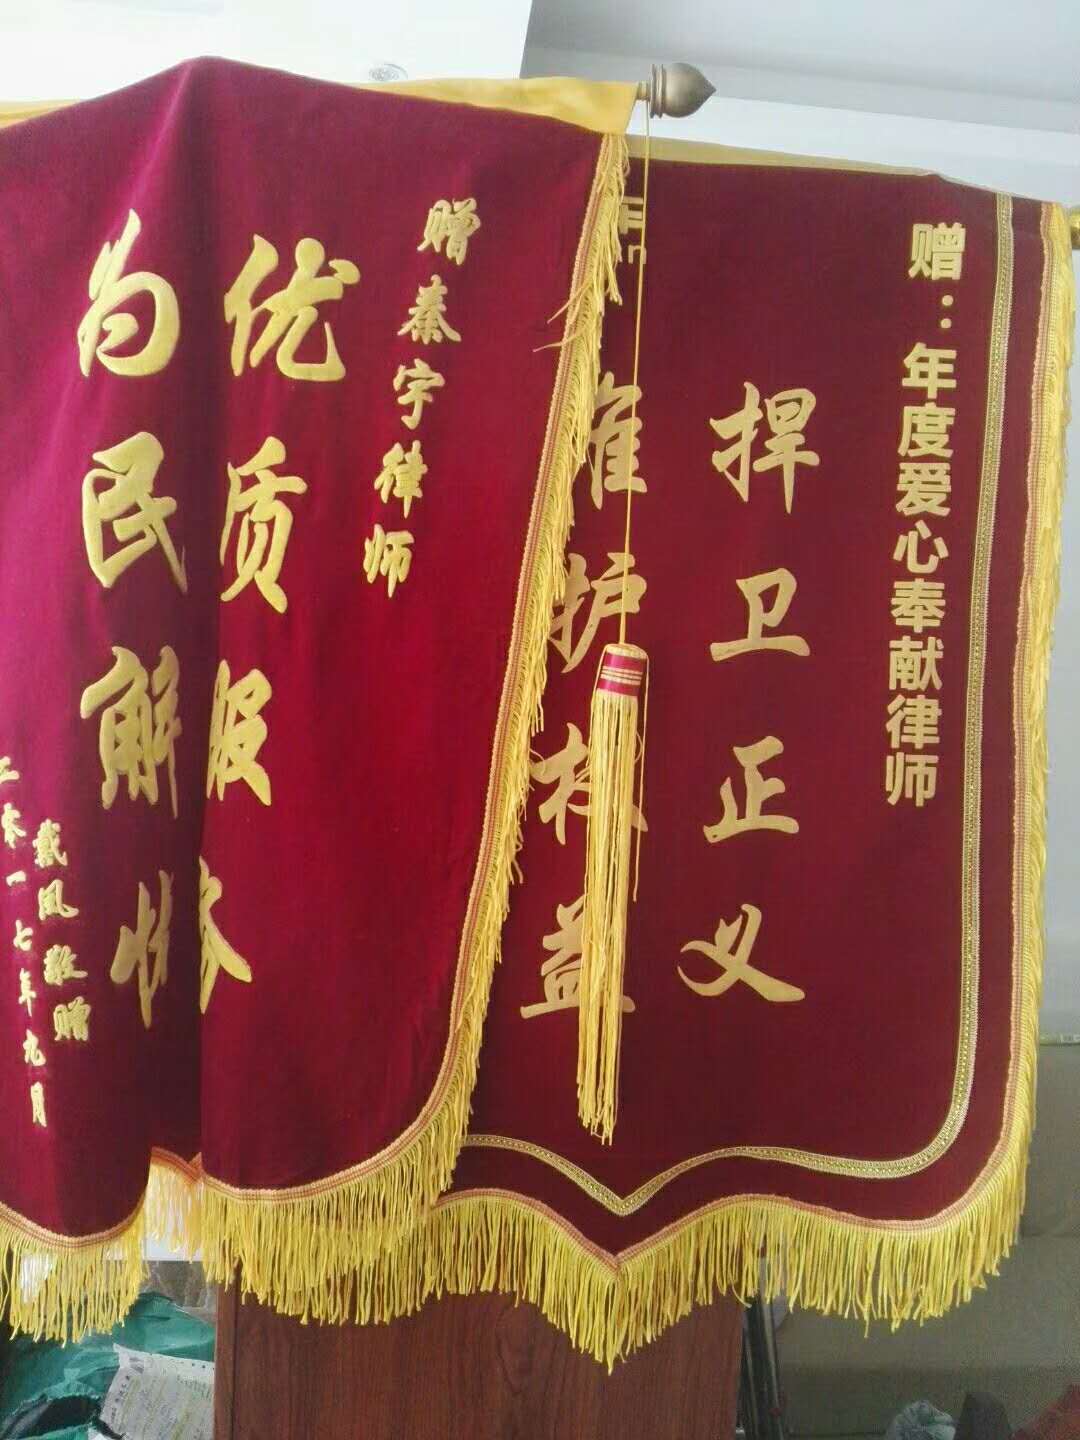 赠：年度爱心奉献律师
捍卫正义
维护权益
赠秦宇律师
优质服务
为民解忧
戴凤敬赠
一七年九月